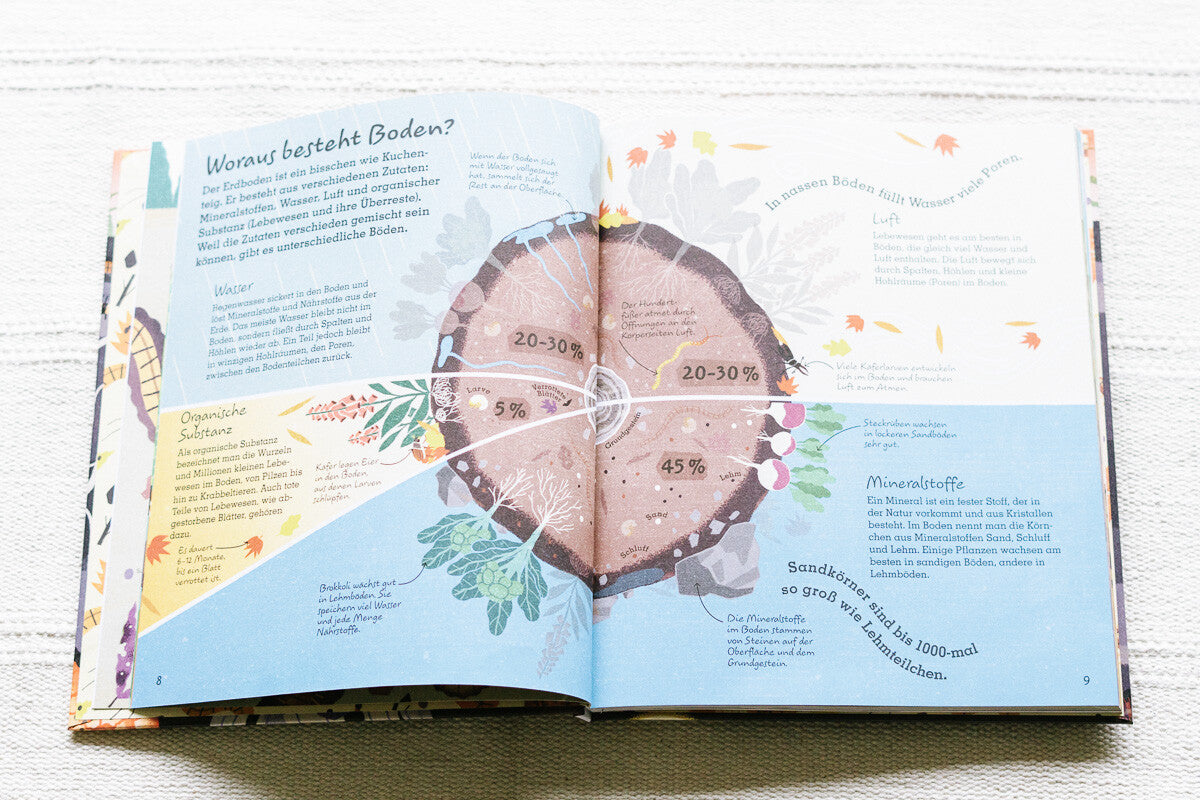 Woraus besteht Boden?
Der Erdboden ist ein bisschen wie Kuchen-
teig. Er besteht aus verschiedenen Zutaten:
Mineralstoffen, Wasser, Luft und organischer
Substanz (Lebewesen und ihre Überreste).
Weil die Zutaten verschieden gemischt sein
können, gibt es unterschiedliche Böden.
Wenn der Boden sich
mit Wasser vollgesaugt
hat, sammelt sich der
Rest an der Oberfläche.
Wasser
Regenwasser sickert in den Boden und
löst Mineralstoffe und Nährstoffe aus der
Erde. Das meiste Wasser bleibt nicht im
Boden, sondern fließt durch Spalten und
Höhlen wieder ab. Ein Teil jedoch bleibt
in winzigen Hohlräumen, den Poren,
zwischen den Bodenteilchen zurück.
20-30 %
Organische
Substanz
Als organische Substanz
bezeichnet man die Wurzeln
und Millionen kleinen Lebe-
wesen im Boden, von Pilzen bis
hin zu Krabbeltieren. Auch tote
Teile von Lebewesen, wie ab-
gestorbene Blätter, gehören
dazu.
Es dauert
6-12 Monate,
bis ein Blatt
verrottet ist.
Larve
Verrottete
Blätter
5 %
Käfer legen Eier
in den Boden,
aus denen Larven
schlüpfen.
Brokkoli wächst gut
in Lehmböden. Sie
speichern viel Wasser
und jede Menge
Nährstoffe.
8
In nassen Böden füllt Wasser viele Poren.
Luft
Lebewesen geht es am besten in
Böden, die gleich viel Wasser und
Luft enthalten. Die Luft bewegt sich
durch Spalten, Höhlen und kleine
Hohlräume (Poren) im Boden.
Der Hundert-
füßer atmet durch
Öffnungen an den
Körperseiten Luft.
20-30 %
Viele Käferlarven entwickeln
sich im Boden und brauchen
Luft zum Atmen.
Steckrüben wachsen
in lockeren Sandböden
sehr gut.
Grundgestein
45 %
Lehm
Sand
Schluff
Mineralstoffe
Ein Mineral ist ein fester Stoff, der in
der Natur vorkommt und aus Kristallen
besteht. Im Boden nennt man die Körn-
chen aus Mineralstoffen Sand, Schluff
und Lehm. Einige Pflanzen wachsen am
besten in sandigen Böden, andere in
Lehmböden.
Sandkörner sind bis 1000-mal
so groß wie Lehmteilchen.
Die Mineralstoffe
im Boden stammen
von Steinen auf der
Oberfläche und dem
Grundgestein.
9